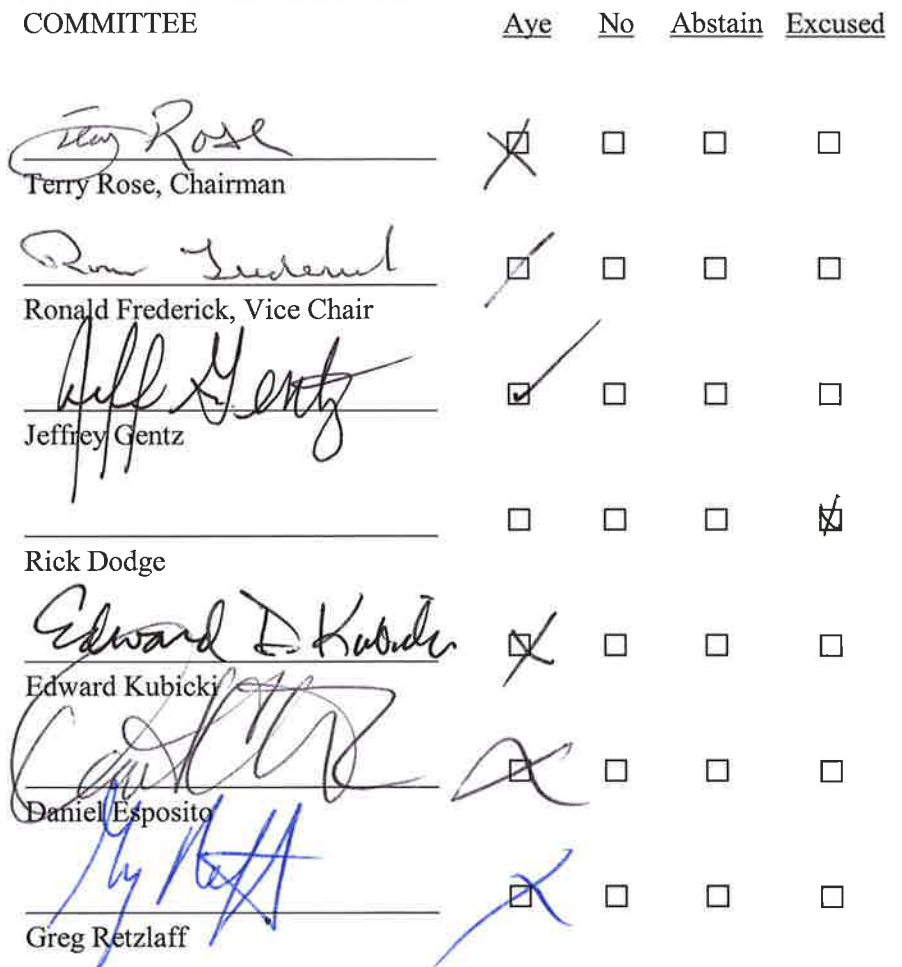 COMMITTEE Aye No Abstain Excused
Terry Rose
Terry Rose, Chairman
Ron Frederick
Ronald Frederick, Vice Chair
Jeff Gentz
Jeffrey Gentz
Rick Dodge
Edward D Kubicki
Edward Kubicki
Daniel Esposito
Greg Retzlaff